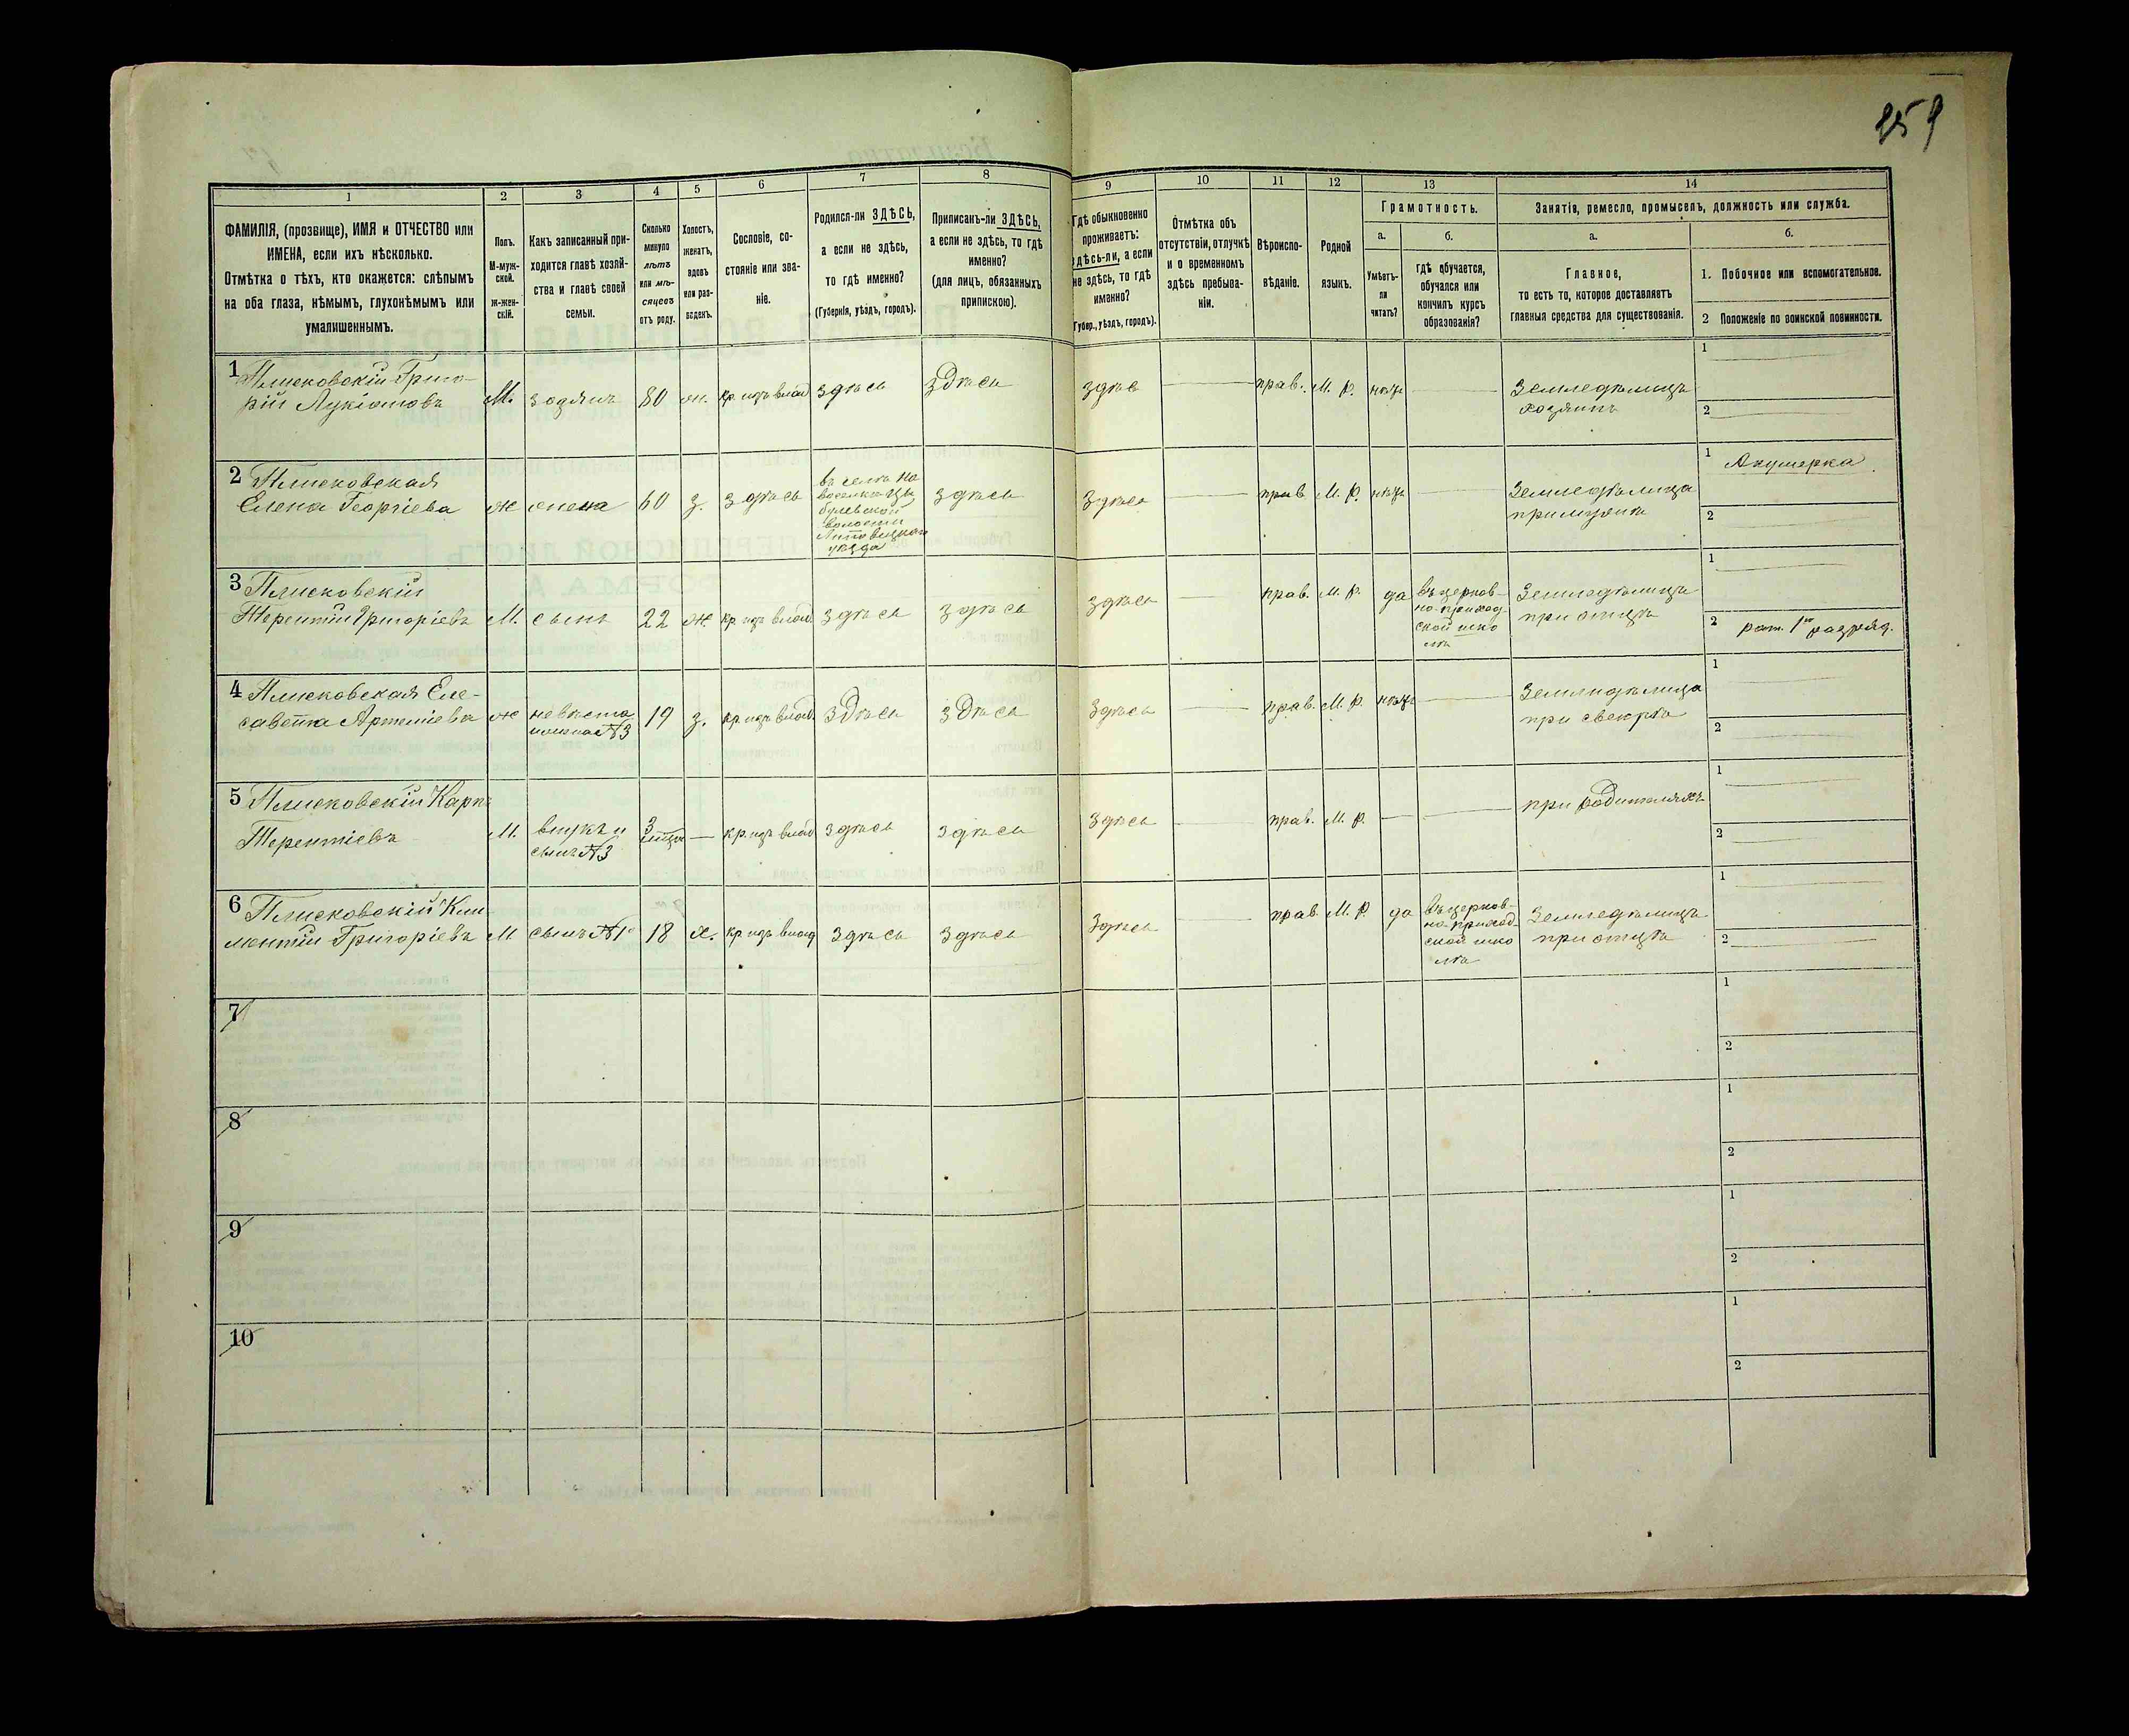 259
1 2 3 4 5 6 7 8 9 10 11 12 13 14
ФАМИЛІЯ, (прозвище), ИМЯ и ОТЧЕСТВО или
ИМЕНА, если ихъ нѣсколько.
Отмѣтка о тѣхъ, кто окажется: слѣпымъ
на оба глаза, нѣмымъ, глухонѣмымъ или
умалишеннымъ.
Полъ.
М-муж-
ской.
Ж-жен-
скій.
Какъ записанный при-
ходится главѣ хозяй-
ства и главѣ своей
семьи.
Сколько
минуло
лѣтъ
или мѣ-
сяцевъ
отъ роду.
Холостъ,
женатъ,
вдовъ
или раз-
веденъ.
Сословіе, со-
стояніе или зва-
ніе.
Родился-ли ЗДѢСЬ,
а если не здѣсь,
то гдѣ именно?
(Губернія, уѣздъ, городъ).
Приписанъ-ли ЗДѢСЬ,
а если не здѣсь, то гдѣ
именно?
(для лицъ, обязанныхъ
припискою).
Гдѣ обыкновенно
проживаетъ:
здѣсь-ли, а если
не здѣсь, то гдѣ
именно?
(Губер., уѣздъ, городъ).
Отмѣтка объ
отсутствіи, отлучкѣ
и о временномъ
здѣсь пребыва-
ніи.
Вѣроиспо-
вѣданіе.
Родной
языкъ.
Грамотность.
а.
Умѣетъ-
ли
читать?
б.
гдѣ обучается,
обучался или
кончилъ курсъ
образованія?
Занятія, ремесло, промыселъ, должность или служба.
а.
Главное,
то есть то, которое доставляетъ
главныя средства для существованія.
б.
1. Побочное или вспомогательное.
2 Положеніе по воинской повинности.
1 Плисковскій Григо-
рій Лукіановъ М. хозяинъ 80 ж. кр. изъ влад здѣсь здѣсь здѣсь прав. М. р. нѣтъ Земледѣлецъ
хозяинъ
1
2
2 Плисковская
Елена Георгіева ж жена 60 з. здѣсь
волости
уѣзда
здѣсь здѣсь прав. М. р. нѣтъ Земледѣлица
при мужѣ
1 Акушерка
2
3 Плисковскій
Терентій Григоріевъ М. сынъ 22 ж. кр. изъ влад здѣсь здѣсь здѣсь прав. М. р. да въ церков-
но-приход-
ской шко
лѣ
Земледѣлецъ
при отцѣ
1
2 рат. 1го разряд.
4 Плисковская Еле-
савета Артеміева ж невѣста
жена №3 19 з. кр. изъ влад здѣсь здѣсь здѣсь прав. М. р. нѣтъ Земледѣлица
при свекрѣ
1
2
5 Плисковскій Карпъ
Терентіевъ М. внукъ и
сынъ №3 3
мѣсяца — кр. изъ влад здѣсь здѣсь здѣсь прав. М. р. — при родителяхъ
1
2
6 Плисковскій Кли
ментій Григоріевъ М сынъ №1 18 х. кр изъ влад здѣсь здѣсь здѣсь прав. М. р. да въ церков-
но-приход-
ской шко
лѣ
Земледѣлецъ
при отцѣ
1
2
7
1
2
8
1
2
9
1
2
10
1
2